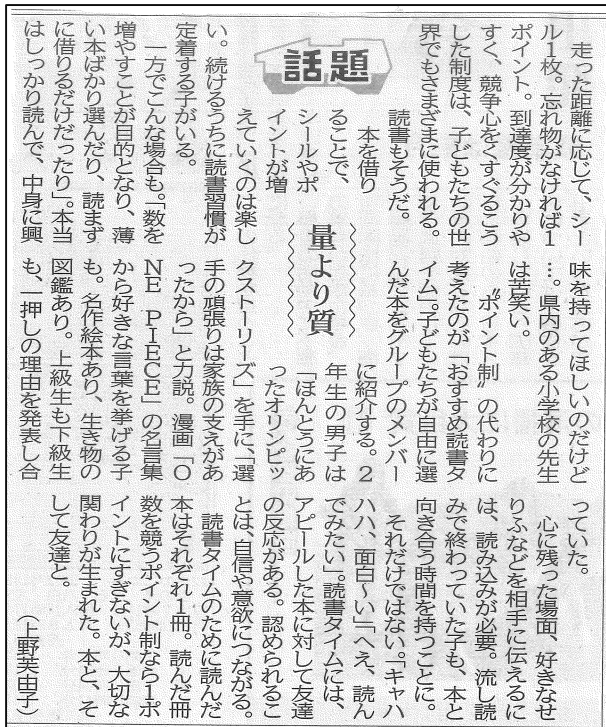 話題
量より質
走った距離に応じて、シー
ル1枚。忘れ物がなければ1
ポイント。到達度が分かりや
すく、競争心をくすぐるこう
した制度は、子どもたちの世
界でもさまざまに使われる。
読書もそうだ。
本を借り
ることで、
シールやポ
イントが増
えていくのは楽し
い。続けるうちに読書習慣が
定着する子がいる。
一方でこんな場合も。「数を
増やすことが目的となり、薄
い本ばかり選んだり、読まず
に借りるだけだったり」。本当
はしっかり読んで、中身に興
味を持ってほしいのだけど
…。県内のある小学校の先生
は苦笑い。
〝ポイント制〟の代わりに
考えたのが「おすすめ読書タ
イム」。子どもたちが自由に選
んだ本をグループのメンバー
に紹介する。2
年生の男子は
「ほんとうにあ
ったオリンピッ
クストーリーズ」を手に、「選
手の頑張りは家族の支えがあ
ったから」と力説。漫画「O
NE PIECE」の名言集
から好きな言葉を挙げる子
も。名作絵本あり、生き物の
図鑑あり。上級生も下級生
も、一押しの理由を発表し合
っていた。
心に残った場面、好きなせ
りふなどを相手に伝えるに
は、読み込みが必要。流し読
みで終わっていた子も、本と
向き合う時間を持つことに。
それだけではない。「キャハ
ハハ、面白〜い」「へえ、読ん
でみたい」。読書タイムには、
アピールした本に対して友達
の反応がある。認められるこ
とは、自信や意欲につながる。
読書タイムのために読んだ
本はそれぞれ1冊。読んだ冊
数を競うポイント制なら1ポ
イントにすぎないが、大切な
関わりが生まれた。本と、そ
して友達と。
(上野芙由子)